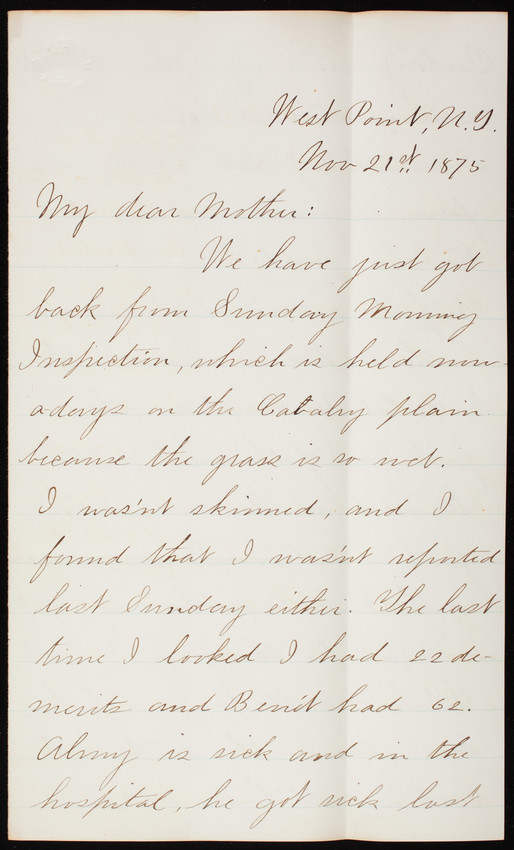 West Point, N.Y.
Nov 21st, 1875
My dear Mother:
We have just got
back from Sunday Morning
Inspection, which is held now-
adays on the Cavalry plain
because the grass is so wet.
I was'nt skinned, and I
found that I was'nt reported
last Sunday either. The last
time I looked I had 22 de-
merits and Benét had 62.
Almy is sick and in the
hospital, he got sick last